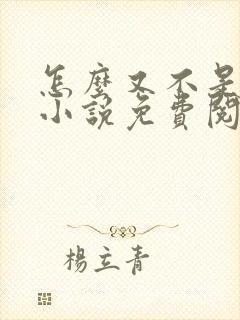 怎麼又不是
小說免費閱
楊立青